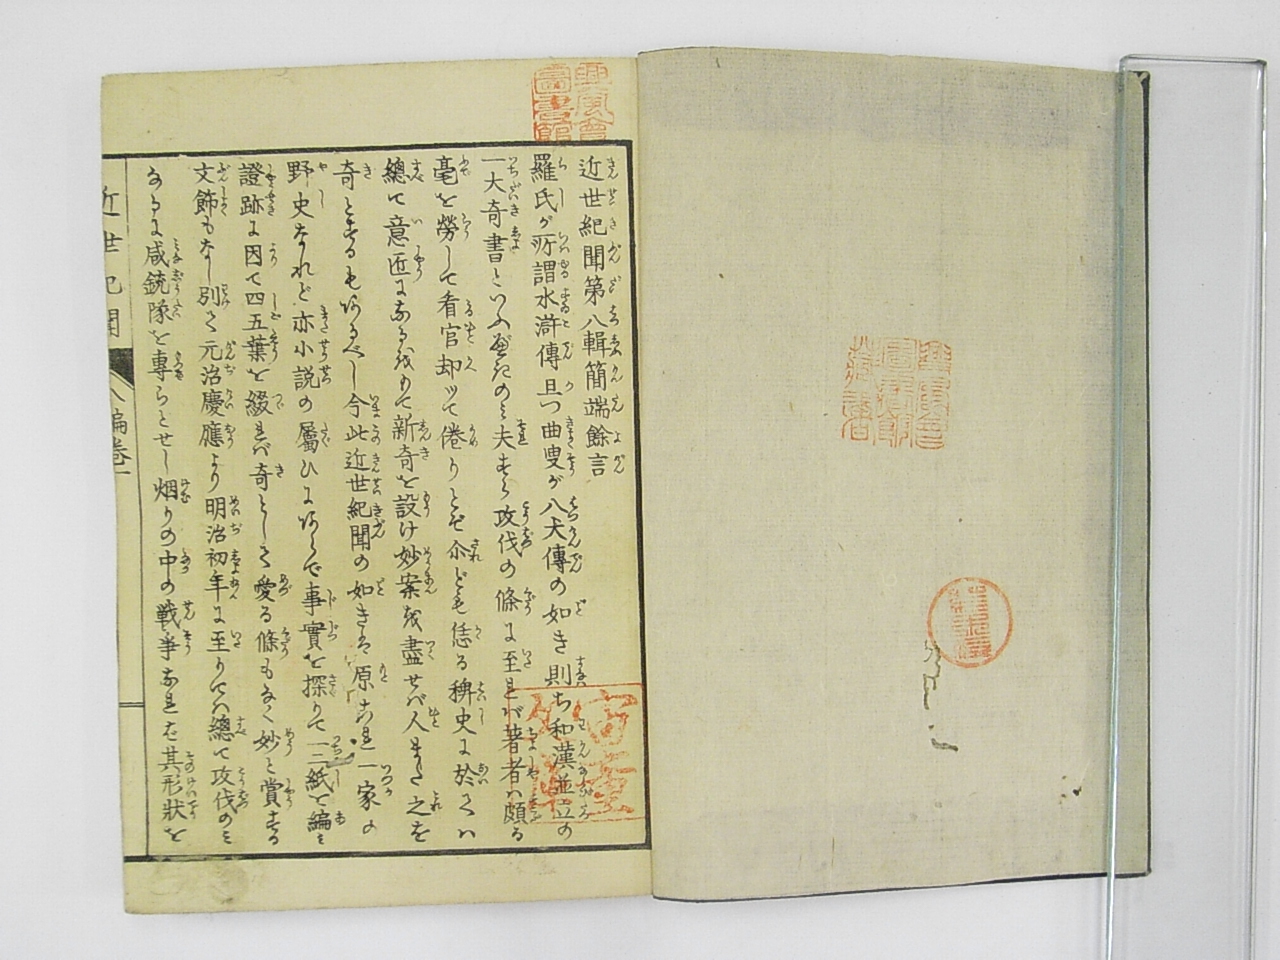 近世紀聞第八輯簡端餘言
羅氏が所謂水滸傳且つ曲叟が八犬傳の如き則ち和漢並立の
一大奇書といふ べきのミ夫すら攻伐の條に至れバ著者ハ頗る
毫を勞して看官却ツて倦りとぞ尒ども恁る稗史に於てハ
總て意匠になるをもて新奇を設け妙案を盡せバ人また之を
奇とするも あるべし今此近世紀聞の如きは原これ一家の
野史なれど亦小説の屬ひにあらで事實を探りて一二紙を編ミ
證跡に因て四五葉を綴れバ奇として愛る條もなく妙と賞する
文飾もなし別て元治慶應より明治初年に至りてハ總て攻伐のミ
なるに咸銃隊を專らとせし烟りの中の戦争なれば其形状を
近世紀聞
八編巻一
興風會
圖書館
興風會
圖書館
藏書